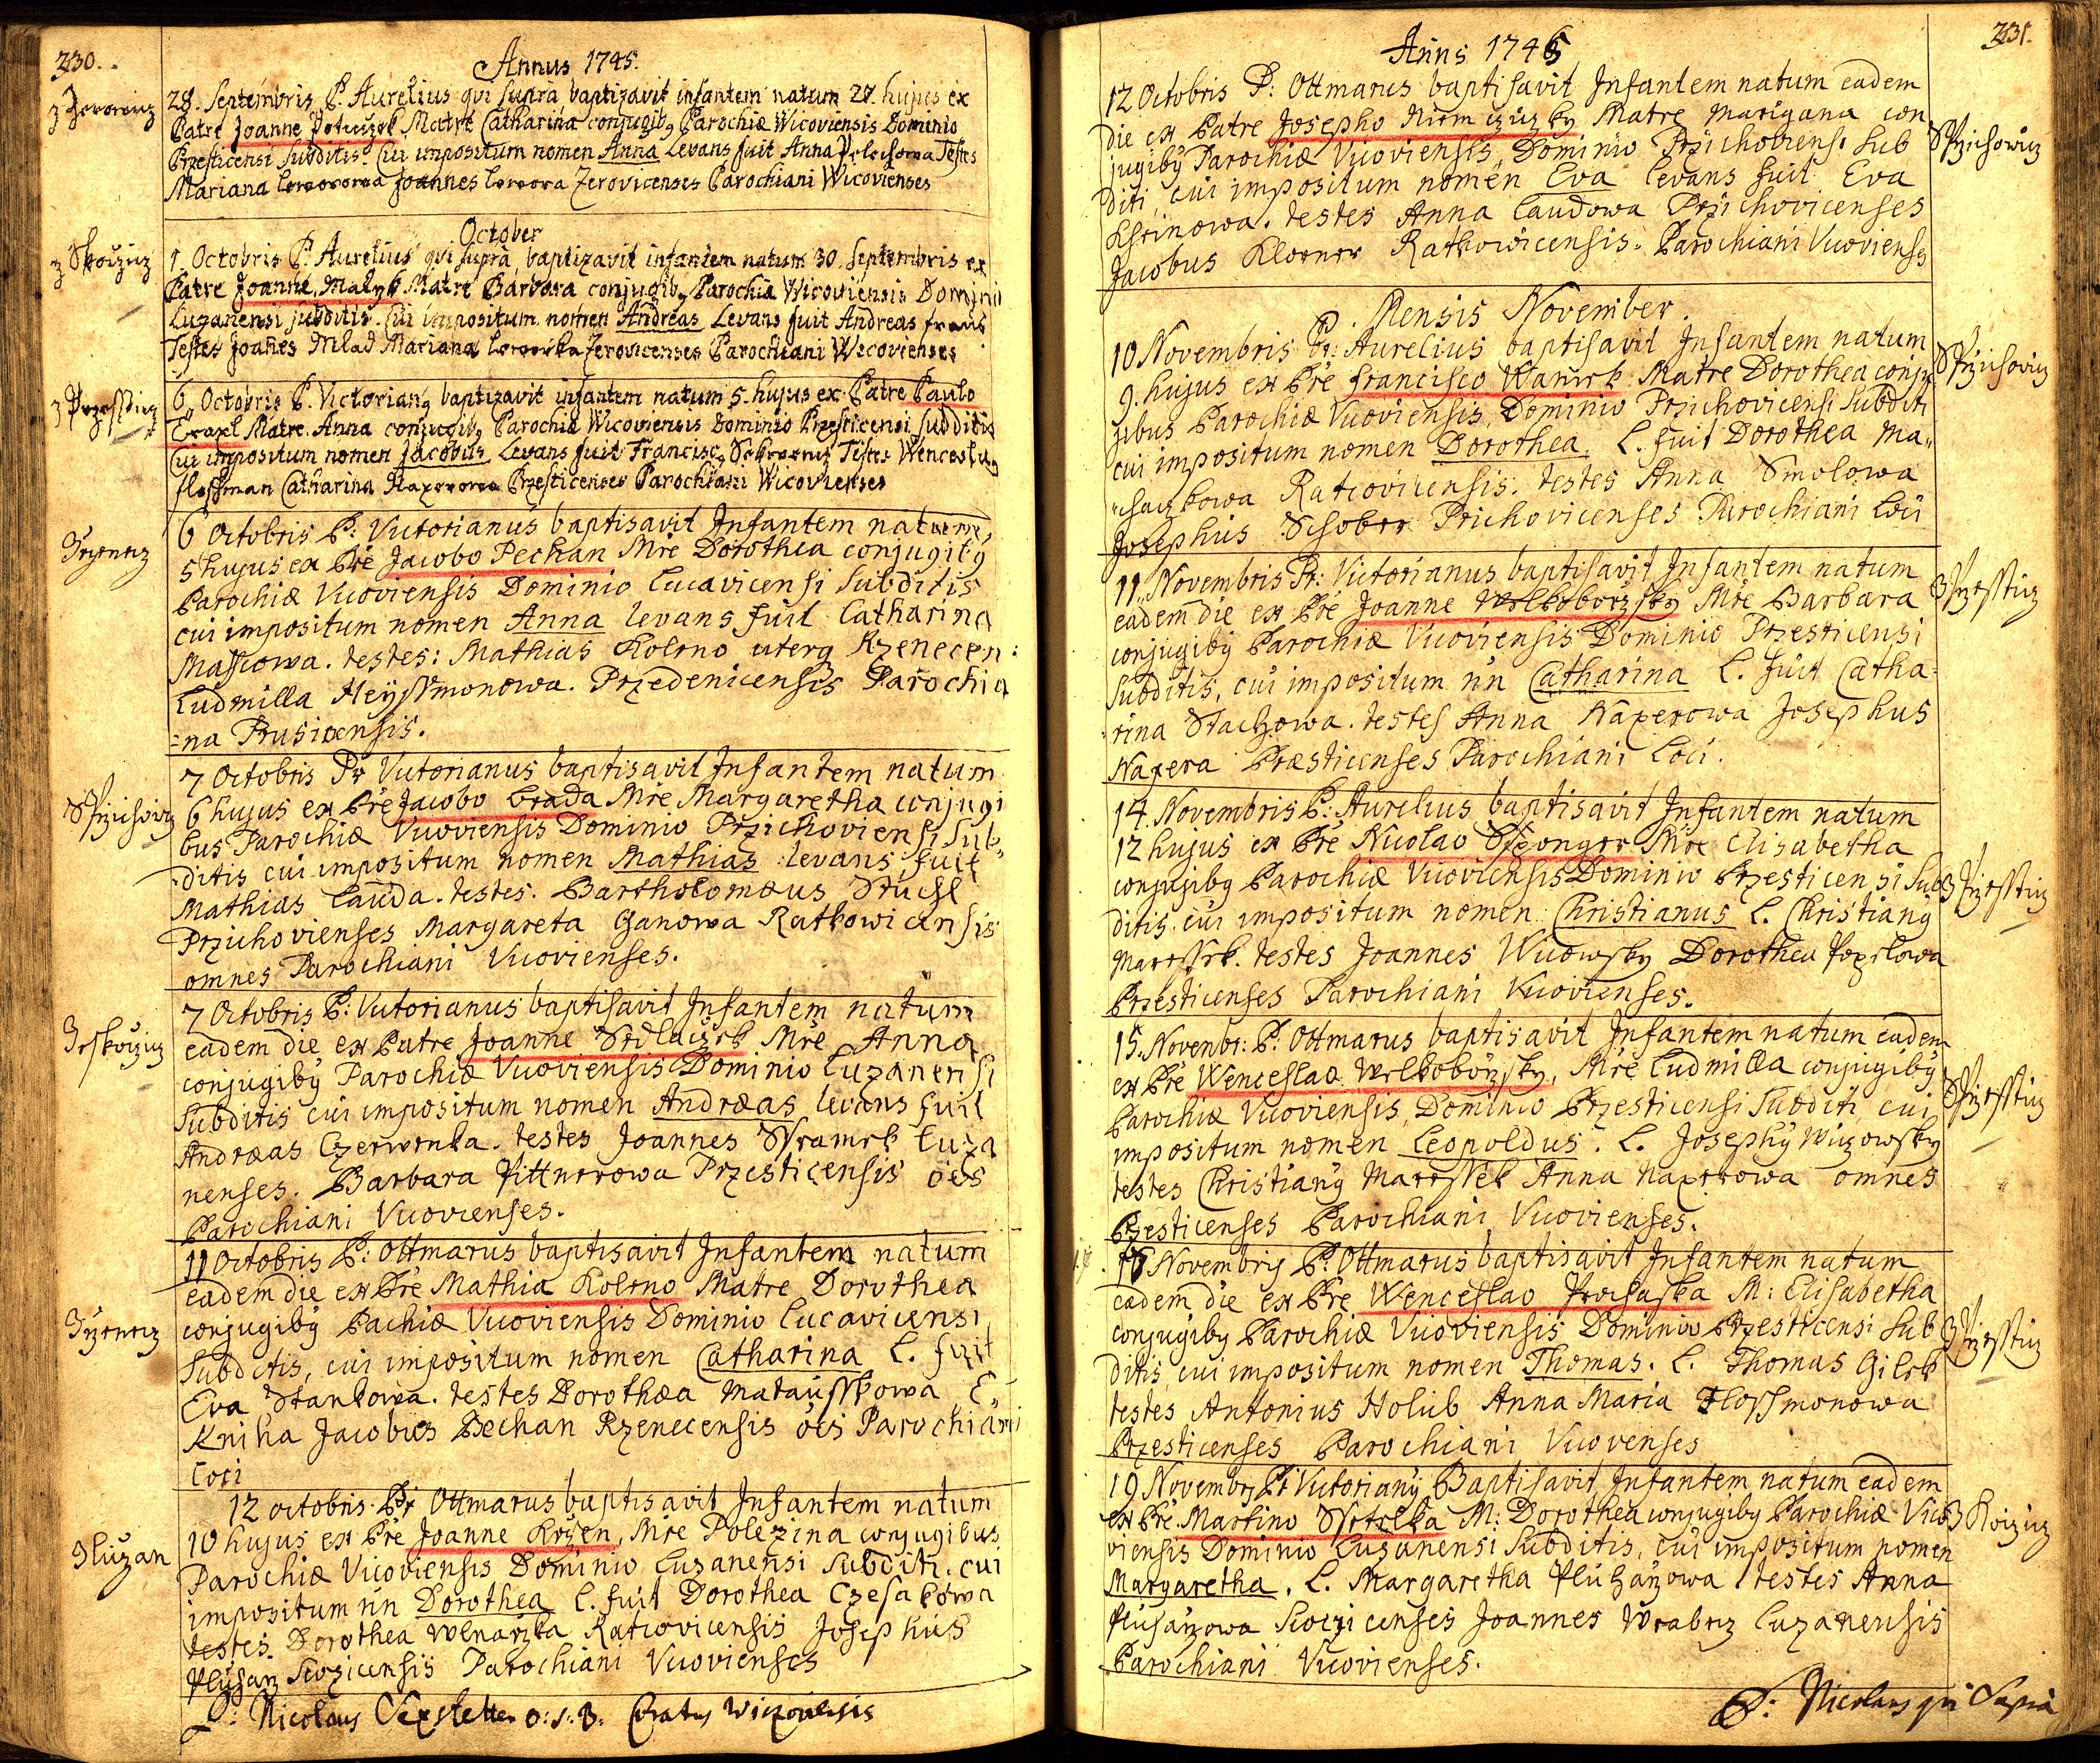 230.
Annus 1745.
z Zerowiz
28. Septembris P. Aurelius qvi supra baptizavit infantem natum 27. hujus ex
Patre Joanne Matre Catharina conjugibq Parochiæ Wicoviensis Dominio
Przesticensi subditis. Cui impositum nomen Anna Levans fuit Anna Testes
Mariana Joannes Zerovicenses Parochiani Wicovienses
October
z Skoczicz
1. Octobris P. Aurelius qvi supra, baptizavit infantem natum 30. Septembris ex
Patre Joanne Matre Barbara conjugibq Parochiæ Wicoviensis Domini
Luzanensi subditis. Cui impositum nomen Andreas Levans fuit Andreas
Testes Joañes Mlad Mariana Zerovicenses Parochiani Wicovienses
z Przessticz
6 Octobris P. Victorianq baptizavit infantem natum 5. hujus ex Patre Paulo
Matre Anna conjugibq Parochiæ Wicoviensis Dominio Przesticensi subditis
Cui impositum nomen Jacobus Levans fuit Franciscq Testes Wenceslaq
Catharina Przesticenses Parochiani Wicovienses
6 Octobris P: Victorianus baptisavit Infantem natum
5 hujus ex Pre Jacobo Pechan Mre Dorothea conjugibq
Parochiæ Vicoviensis Dominio Lucavicensi Subditis
cui impositum nomen Anna levans fuit Catharina
Mascowa. testes: Mathias Koleno uterq Rzenecen:
Ludmilla Heyssmonowa. Przedenicensis Parochia
=na Prusicensis.
7 Octobris Pr Victorianus baptisavit Infantem natum
6 hujus ex Pre Jacobo Brada Mre Margaretha conjugi
bus Parochiæ Vicoviensis Dominio Przichoviensi Sub,,
ditis cui impositum nomen Mathias levans fuit
Mathias Lauda. testes. Bartholomæus
Przichovienses Margareta Ganowa Ratkowicensis
omnes Parochiani Vicovienses.
7 Octobris P: Victorianus baptisavit Infantem natum
eadem die ex Patre Joanne Sedlaczek Mre Anna
conjugibq Parochiæ Vicoviensis Dominio Luzanensi
Subditis cui impositum nomen Andræas levans fuit
Andræas Czerwenka. testes Joannes Sramek Luza
nenses. Barbara Pittnerowa Przesticensis oẽs
Parochiani Vicovienses.
11 Octobris P: Ottmarus baptisavit Infantem natum
eadem die ex Pre Mathia Koleno Matre Dorothea
conjugibq Pachiæ Vicoviensis Dominio Lucavicensi
Subditis, cui impositum nomen Catharina L. fuit
Eva Stankowa. testes Dorothæa Matausskowa E
Kniha Jacobus Pechan Rzenecensis oẽs Parochiani
Loci
z Luzan
12 octobris Pr Ottmarus baptisavit Infantem natum
10 hujus ex Pre Joanne Mre Polexina conjugibus
Parochiæ Vicoviensis Dominio Luzanensi Subditi. cui
impositum nn Dorothea L. fuit Dorothea Czesakowa
testes Dorothea Ratcovicensis Josephus
Sioczicensis Parochiani Vicovienses
P: Nicolaus O: S: B: Curatus Wiczoviensis
231.
Anns 1745
12 Octobris P: Ottmarus baptisavit Infantem natum eadem
die ex Patre Josepho Matre Marigana con
jugibq Parochiæ Vicoviensis, Dominio Przichoviens. Sub
diti, cui impositum nomen Eva levans fuit Eva
testes Anna Laudowa Przichovicenses
Jacobus Ratkowicensis. Parochiani Vicoviens
Mensis November.
10 Novembris Pr: Aurelius baptisavit Infantem natum
9. hujus ex Pre Francisco Wanick Matre Dorothea conju
gibus Parochiæ Vicoviensis, Dominio Przichovicensi Subditi
cui impositum nomen Dorothea, L. fuit Dorothea Ma,,
Ratcovicensis. testes Anna Smolowa
Josephus Schober Prichovicenses Parochiani Loci
11. Novembris Pr: Victorianus baptisavit Infantem natum
eadem die ex Pre Joanne Welkoborzsky Mre Barbara
conjugibq Parochiæ Vicoviensis Dominio Przesticensi
Subditis, cui impositum nn Catharina L. fuit Catha=
rina Stachowa. testes Anna Naxerowa Josephus
Naxera Præsticenses Parochiani Loci.
14. Novembris P: Aurelius baptisavit Infantem natum
12 hujus ex Pre Nicolao Mre Elisabetha
conjugibq Parochiæ Vicoviensis Dominio Przesticensi Sub
ditis, cui impositum nomen Christianus L. Christianq
Maressek. testes Joannes Wicowsky Dorothea
Przesticenses Parochiani Vicovienses.
15. Novembr: P: Ottmarus baptisavit Infantem natum eadem
ex Pre Wenceslao Welkoborzsky, Mre Ludmilla conjugibq
Parochiæ Vicoviensis, Dominio Przesticensi Subditi, cui
impositum nomen Leopoldus. L. Josephq Wiczowsky
testes Christianq Maressek Anna Naxerowa omnes
Przesticenses Parochiani Vicovienses.
Novembris P: Ottmarus baptisavit Infantem natum
eadem die ex Pre Wenceslao Prochaska M: Elisabetha
conjugibq Parochiæ Vicoviensis Dominio Przesticensi Sub
ditis, cui impositum nomen Thomas. L. Thomas Gilek
testes Antonius Holub Anna Maria Flossmonowa
Przesticenses Parochiani Vicovenses
19 Novembr Pr Victorianq Baptisavit Infantem natum eadem
ex Pre Martino M: Dorothea conjugibq Parochiæ Vico
viensis Dominio Luzanensi Subditis, cui impositum nomen
Margaretha. L. Margaretha testes Anna
Sioczicenses Joannes Wrabecz Luzanensis
Parochiani Vicovienses.
P: Nicolaus qvi Supra